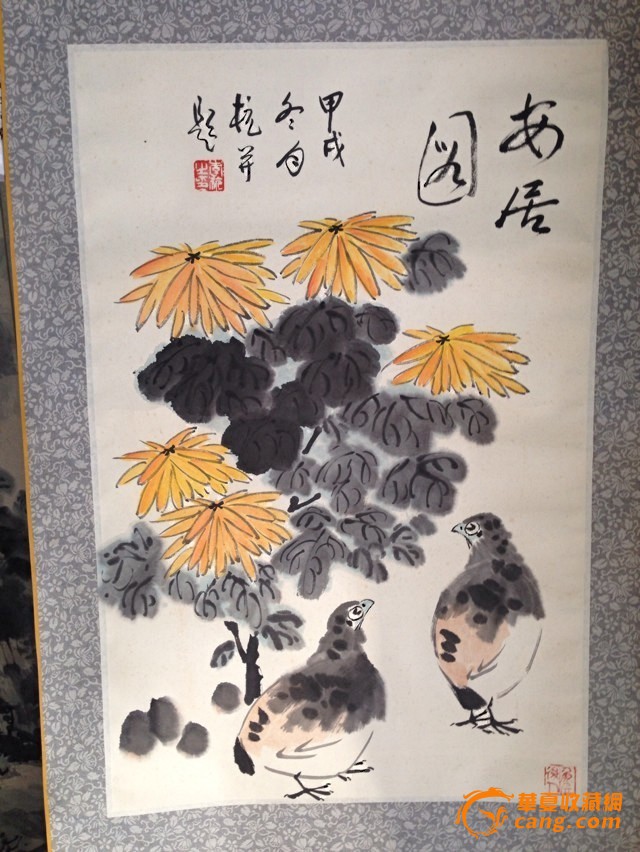 安居
图
甲戌
冬月
并
题
華夏收藏網
cang.com